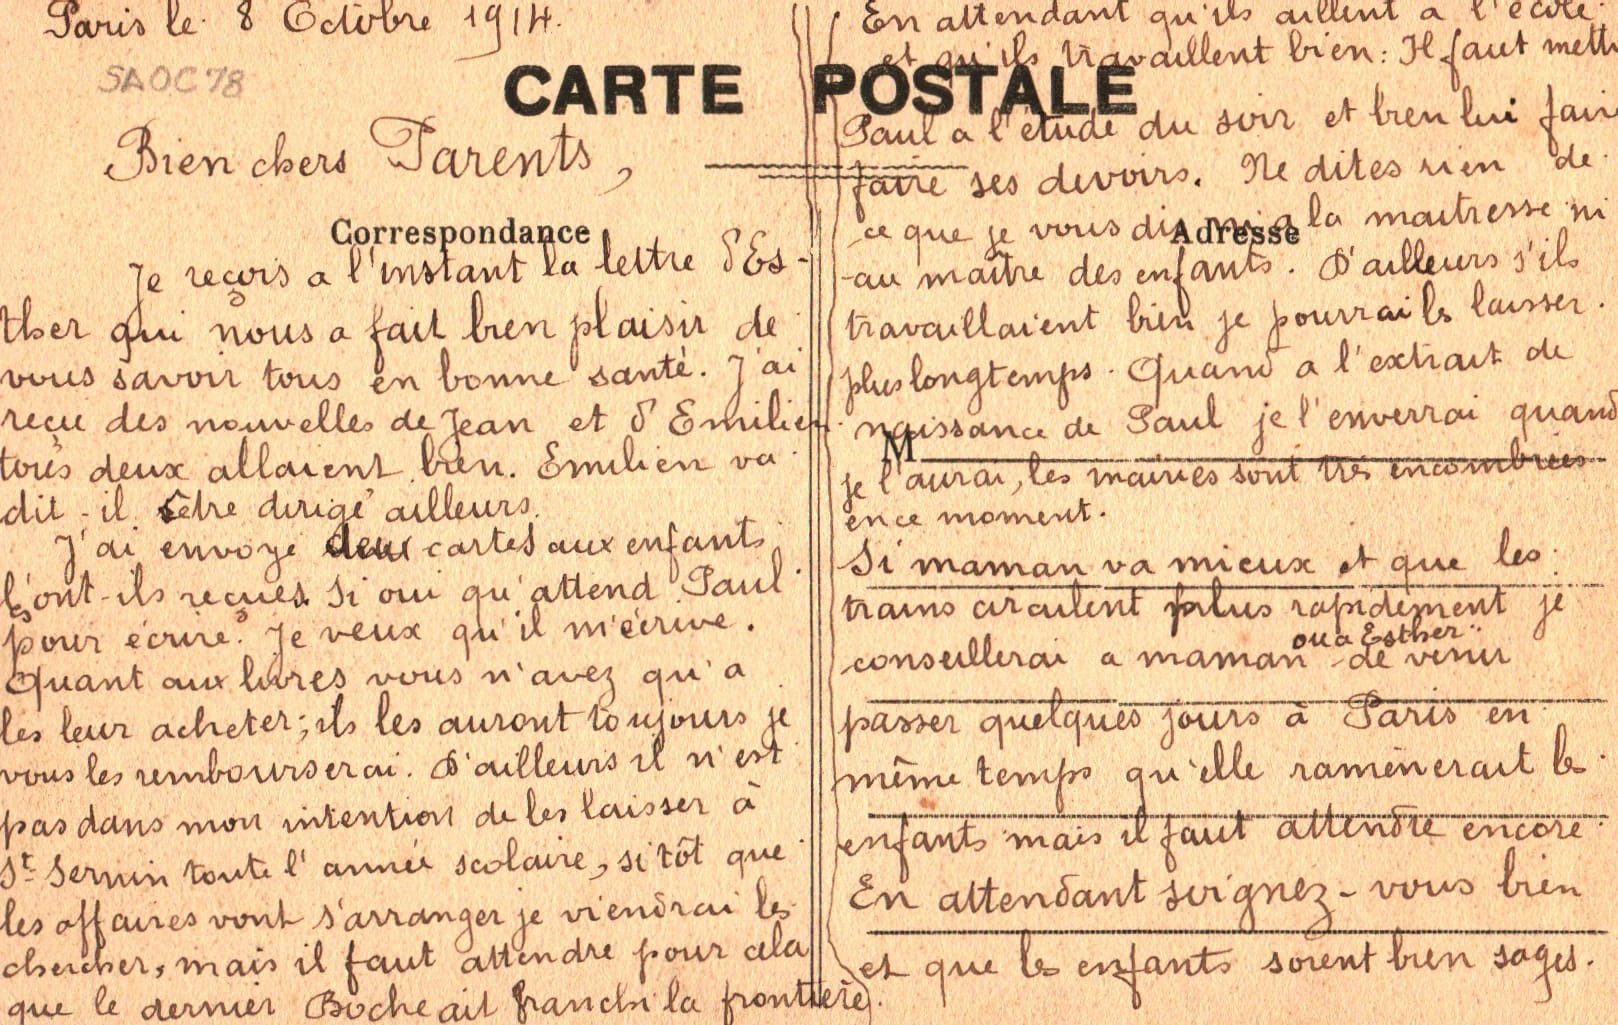 Paris le 8 Octobre 1914.
SAOC78
CARTE POSTALE
Bien chers Parents,
Correspondance
Je reçois a l'instant la lettre d'Es-
ther qui nous a fait bien plaisir de
vous savoir tous en bonne santé. J'ai
reçu des nouvelles de Jean et d'Emilien
tous deux allaient bien. Emilien va
dit-il être dirigé ailleurs.
J'ai envoyé deux cartes aux enfants
l'ont-ils reçues. Si oui qu'attend Paul
pour écrire? Je veux qu'il m'écrive.
Quant aux livres vous n'avez qu'a
les leur acheter; ils les auront toujours je
vous les rembourserai. D'ailleurs il n'est
pas dans mon intention de les laisser à
St Sernin toute l'année scolaire, sitôt que
les affaires vont s'arranger je viendrai les
chercher, mais il faut attendre pour cela
que le dernier Boche ait franchi la frontière.
En attendant qu'ils aillent a l'école
et qu'ils travaillent bien: Il faut mettr
Paul a l'etude du soir et bien lui faire
faire ses devoirs. Ne dites rien de
ce que je vous dis ni a la maitresse ni
Adresse
au maître des enfants. D'ailleurs s'ils
travaillaient bien je pourrai ls laisser
plus longtemps. Quand a l'extrait de
naissance de Paul je l'enverrai quand
M
je l'aurai, les mairies sont très encombrées
en ce moment.
Si maman va mieux et que les
trains circulent plus rapidement je
ou a Esther
conseillerai a maman de venir
passer quelques jours à Paris en
même temps qu'elle ramènerait ls
enfants mais il faut attendre encore
En attendant soignez-vous bien
et que ls enfants soient bien sages.